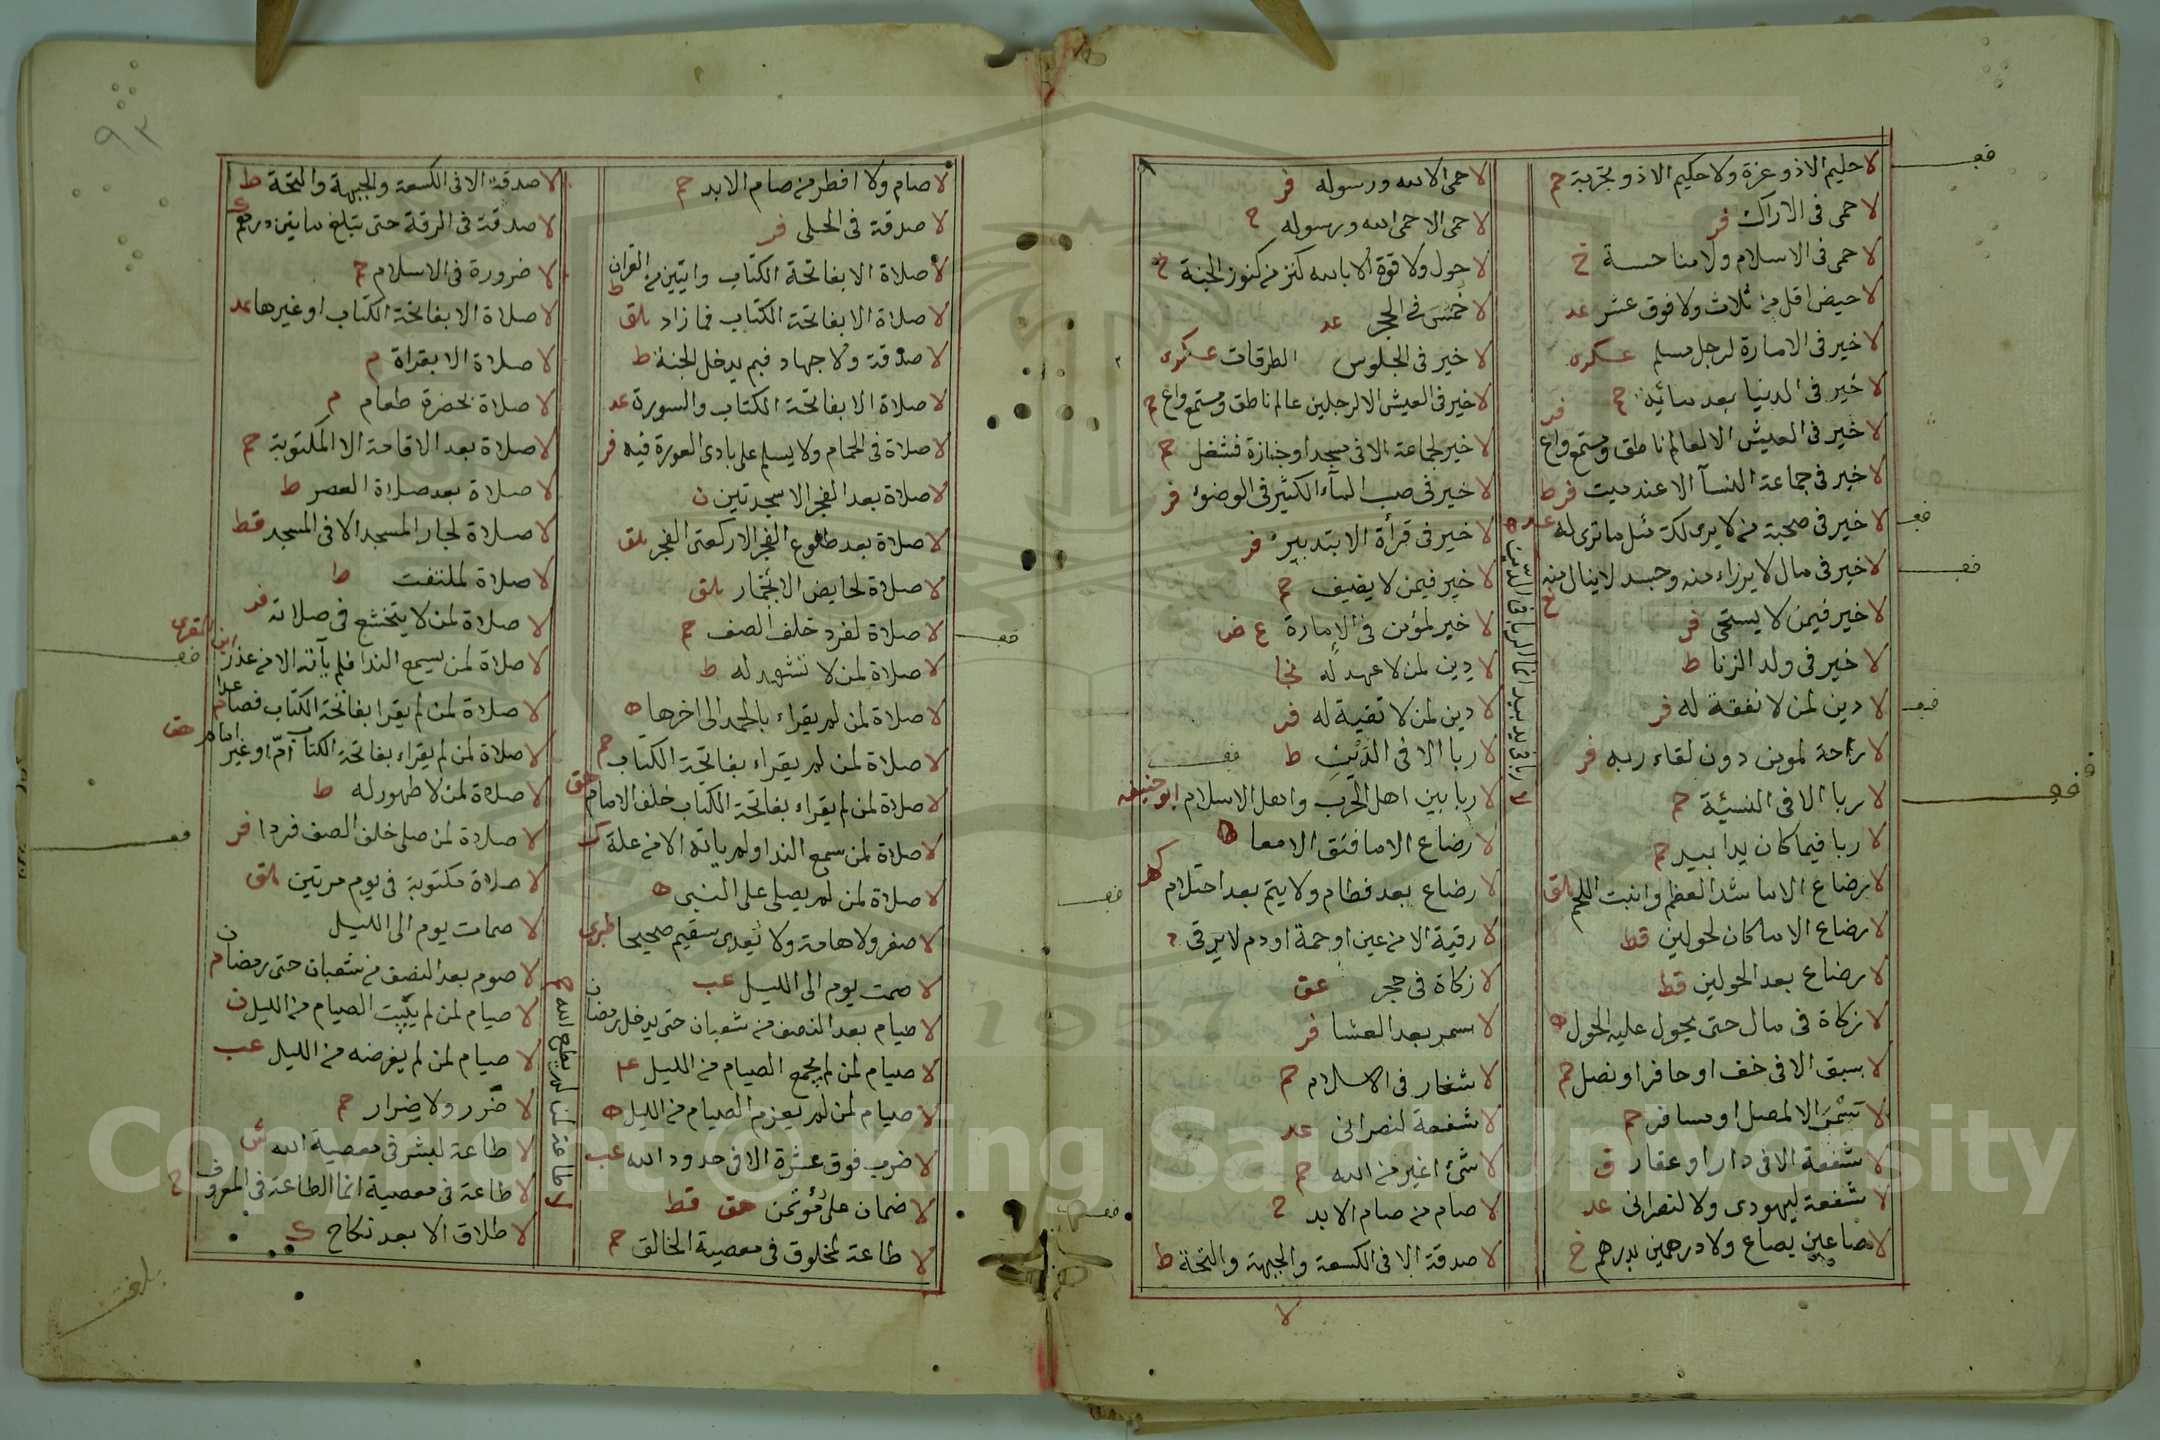 لا حليم الا ذو عزة ولا حكيم الا ذو تجربة حم
لا حمى فى الاراك فر
لا حمى فى الاسلام ولا مناحسة خ
لا حيض اقل من ثلاث ولا فوق عشر عد
لا خير فى الامارة لرجل مسلم عسكرى
لا خير فى الدنيا بعد مائة حم
لا خير فى العيش الا لعالم ناطق ومستمع واع فر
لا خير فى جماعة النسآ الا عند ميت فر ط
لا خير فى صحبة من لا يرى لك مثل ما ترى له عد
لا خير فى مال لا يرزاء منه وجسد لا ينال منه
لا خير فيمن لا يستحى فر
لا خير فى ولد الزنا ط
لا دين لمن لا نفقة له فر
لا راحة لمومن دون لقاء ربه فر
لا ربا الا فى النسيئة حم
لا ربا فيما كان يدا بيد حم
لا رضاع الا ما شد العظم وانبت اللحم
لا رضاع الا ما كان لحولين قط
لا رضاع بعد الحولين قط
لا زكاة فى مال حتى يحول عليه الحول ه
لا سبق الا فى خف او حافر او نصل حم
لا سمر الا لمصل او مسافر حم
لا شفعة الا فى دار او عقار ق
لا شفعة ليهودى ولا لنصرانى عد
لا صاعين بصاع ولا درهمين بدرهم خ
لا حمى الا لله ورسوله فر
لا حمى الا حمى الله ورسوله ح
لا حول ولا قوة الا بالله كنز من كنوز الجنة
لا خمس فى الحجر عد
لا خير فى الجلوس الطرقات عسكرى
لا خير فى العيش الا لرجلين عالم ناطق ومستمع واع
لا خير لجماعة الا فى مسجد او جنازة فتقل حم
لا خير فى صب المآء الكثير فى الوضوء فر
لا خير فى قرأة الا بتدبير فر
لا خير فيمن لا يضيف حم
لا خير لمؤمن فى الامارة ع ض
لا دين لمن لا عهد له نجا
لا دين لمن لا تقية له فر
لا ربا الا فى الدَّيْنِ ط
لا ربا بين اهل الحرب واهل الاسلام ابو حنيفه
لا رضاع الا ما فتق الامعا ه
لا رضاع بعد فطام ولا يتم بعد احتلام
لا رقية الا من عين او حمة او دم لا يرقى
لا زكاة فى حجر عق
لا سمر بعد العشا فر
لا شغار فى الاسلام حم
لا شفعة لنصرانى عد
لا شئ اغير من الله حم
لا صام من صام الابد ح
لا صدقة الا فى الكسعة والجبهة والنخة ط
لا ربا فى يد بيد انما الربا فى الدين ه
لا صام ولا افطر من صام الابد حم
لا صدقة فى الحلى فر
لا صلاة الا بفاتحة الكتاب وايتين من القران ط
لا صلاة الا بفاتحة الكتاب فما زاد
لا صدقة ولا جهاد فبم يدخل الجنة ط
لا صلاة الا بفاتحة الكتاب والسورة عد
لا صلاة فى الحمام ولا يسلم على بادى العورة فيه فر
لا صلاة بعد الفجر الا سجدتين ن
لا صلاة بعد طلوع الفجر الا ركعتى الفجر
لا صلاة لحايض الا بخمار
لا صلاة لفرد خلف الصف حم
لا صلاة لمن لا تشهد له ط
لا صلاة لمن لم يقراء بالحمد الى اخرها ه
لا صلاة لمن لم يقراء بفاتحة الكتاب حم
لا صلاة لمن لم يقراء بفاتحة الكتاب خلف الامام حق
لا صلاة لمن سمع الندا ولم ياته الا من علة ك
لا صلاة لمن لم يصلى على النبى ه
لا صفر ولا هامة ولا يعدى سقيم صحيحا طبرى
لا صمت يوم الى الليل عب
لا صيام بعد النصف من شعبان حتى يدخل رمضان
لا صيام لمن لم يجمع الصيام من الليل
لا صيام لمن لم يعزم الصيام من الليل ه
لا ضرب فوق عشرة الا فى حدود الله عب
لا ضمان على مؤتمن حق قط
لا طاعة لمخلوق فى معصية الخالق حم
لا صدقة الا فى الكسعة والجبهة والنخة ط
لا صدقة فى الرقة حتى تبلغ مايتين درهم
لا ضرورة فى الاسلام حم
لا صلاة الا بفاتحة الكتاب او غيرها عد
لا صلاة الا بقراة م
لا صلاة بحضرة طعام م
لا صلاة بعد الاقامة الا المكتوبة حم
لا صلاة بعد صلاة العصر ط
لا صلاة لجار المسجد الا فى المسجد قط
لا صلاة لملتفت ط
لا صلاة لمن لا يتخشع فى صلاته فر
لا صلاة لمن يسمع الندا فلم يأته الا من عذر ابن المقرى
لا صلاة لمن لم يقرا بفاتحة الكتاب فصاعدا م
لا صلاة لمن لم يقراء بفاتحة الكتاب امّ او غير امام حق
لا صلاة لمن لا طهور له ط
لا صلاة لمن صلى خلف الصف فردا فر
لا صلاة مكتوبة فى يوم مرتين
لا صمات يوم الى الليل
لا صوم بعد النصف من شعبان حتى رمضان
لا صيام لمن لم يبيت الصيام من الليل ن
لا صيام لمن لم يفرضه من الليل عب
لا ضرر ولا ضرار حم
لا طاعة لبشر فى معصية الله
لا طاعة فى معصية انما الطاعة فى المعروف ح
لا طلاق الا بعد نكاح
لا طاعة لمن لم يطع الله حم
٩٣
Copyright © King Saud University
1957